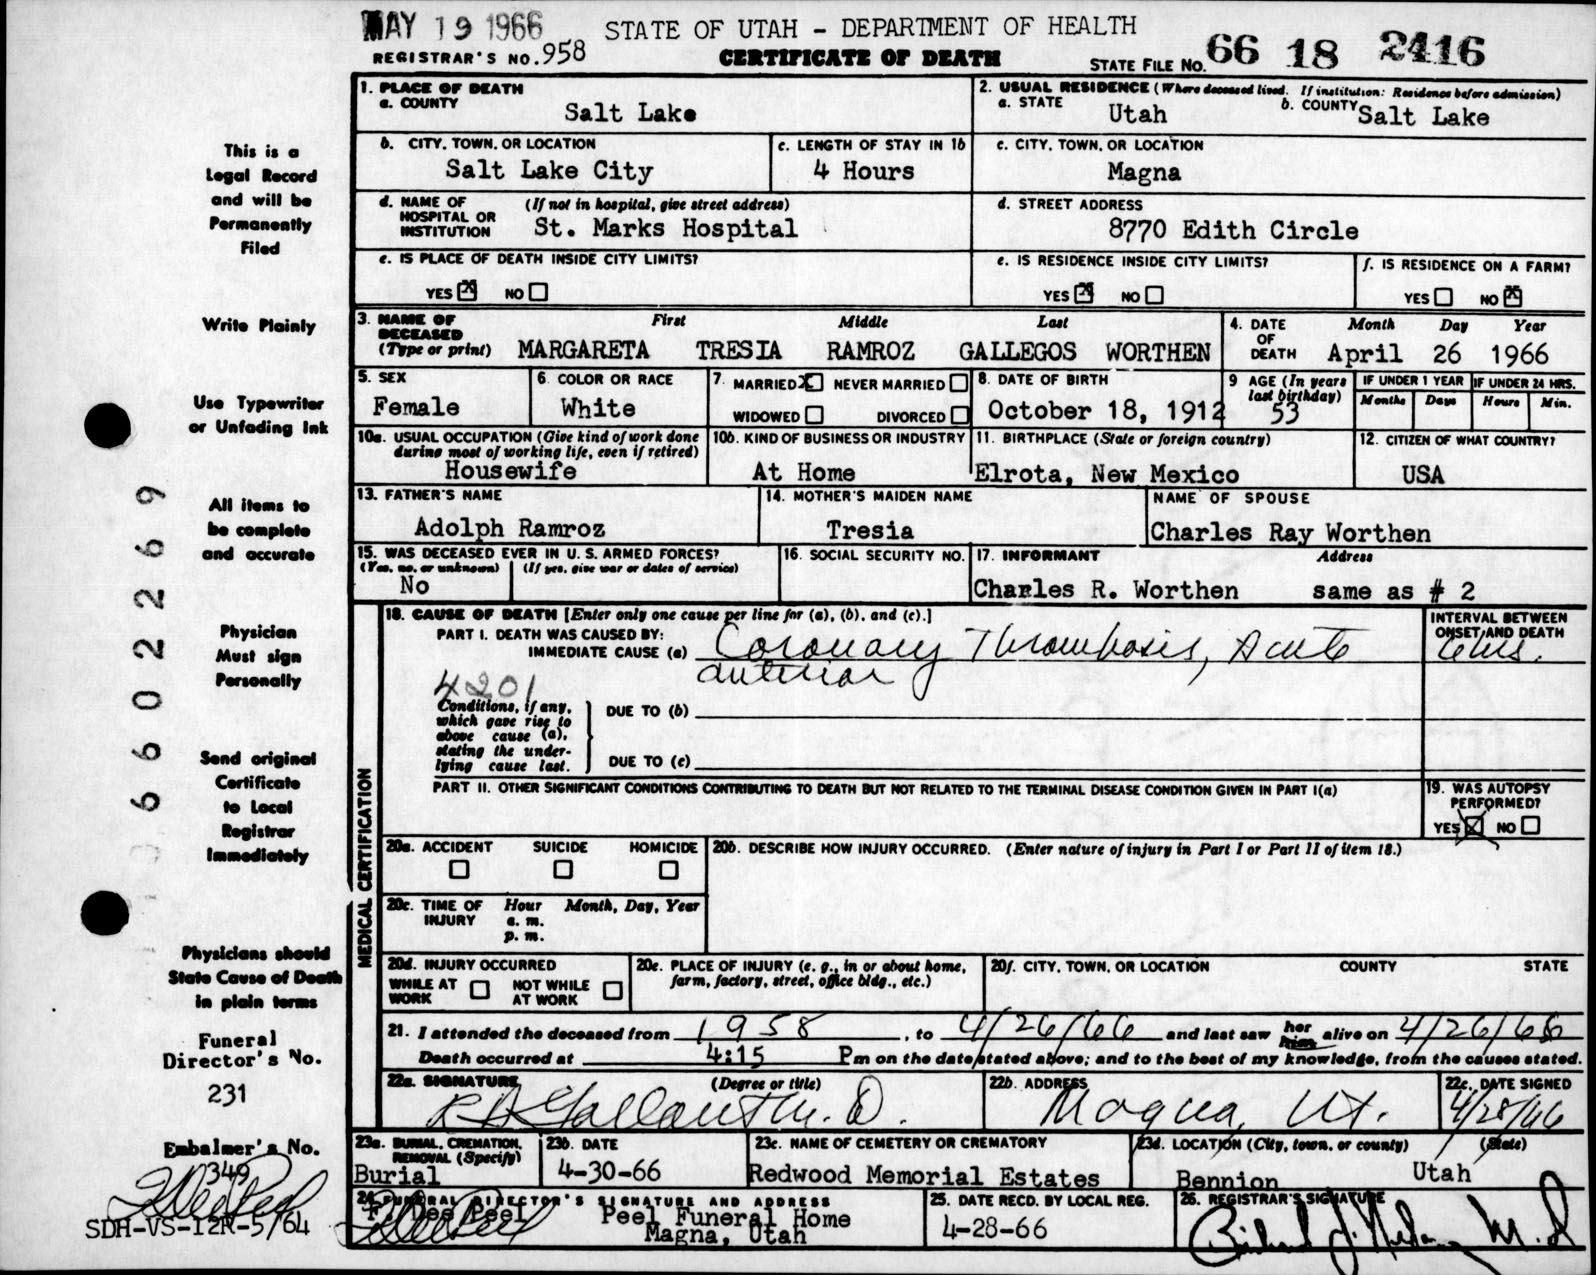 MAY 19 1966
STATE OF UTAH - DEPARTMENT OF HEALTH
REGISTRAR'S NO. 958
CERTIFICATE OF DEATH
STATE FILE NO. 66 18 2416
1. PLACE OF DEATH
a. COUNTY
Salt Lake
2. USUAL RESIDENCE (Where deceased lived. If institution: Residence before admission)
a. STATE
Utah
b. COUNTY
Salt Lake
b. CITY, TOWN, OR LOCATION
Salt Lake City
c. LENGTH OF STAY IN 1b
4 Hours
c. CITY, TOWN, OR LOCATION
Magna
d. NAME OF HOSPITAL OR INSTITUTION
(If not in hospital, give street address)
St. Marks Hospital
d. STREET ADDRESS
8770 Edith Circle
e. IS PLACE OF DEATH INSIDE CITY LIMITS?
YES X NO
e. IS RESIDENCE INSIDE CITY LIMITS?
YES X NO
f. IS RESIDENCE ON A FARM?
YES NO X
3. NAME OF DECEASED (Type or print)
First Middle Last
MARGARETA TRESIA RAMROZ GALLEGOS WORTHEN
4. DATE OF DEATH
Month Day Year
April 26 1966
5. SEX
Female
6. COLOR OR RACE
White
7. MARRIED X NEVER MARRIED
WIDOWED DIVORCED
8. DATE OF BIRTH
October 18, 1912
9 AGE (In years last birthday)
53
IF UNDER 1 YEAR
Months Days
IF UNDER 24 HRS.
Hours Min.
10a. USUAL OCCUPATION (Give kind of work done during most of working life, even if retired)
Housewife
10b. KIND OF BUSINESS OR INDUSTRY
At Home
11. BIRTHPLACE (State or foreign country)
Elrota, New Mexico
12. CITIZEN OF WHAT COUNTRY?
USA
13. FATHER'S NAME
Adolph Ramroz
14. MOTHER'S MAIDEN NAME
Tresia
NAME OF SPOUSE
Charles Ray Worthen
15. WAS DECEASED EVER IN U. S. ARMED FORCES?
(Yes, no, or unknown) (If yes, give war or dates of service)
No
16. SOCIAL SECURITY NO.
17. INFORMANT
Address
Charles R. Worthen same as # 2
MEDICAL CERTIFICATION
18. CAUSE OF DEATH [Enter only one cause per line for (a), (b), and (c).]
PART I. DEATH WAS CAUSED BY:
IMMEDIATE CAUSE (a) Coronary Thrombosis, Acute
anterior
INTERVAL BETWEEN ONSET AND DEATH
4201
Conditions, if any, which gave rise to above cause (a), stating the underlying cause last.
DUE TO (b)
DUE TO (c)
PART II. OTHER SIGNIFICANT CONDITIONS CONTRIBUTING TO DEATH BUT NOT RELATED TO THE TERMINAL DISEASE CONDITION GIVEN IN PART I(a)
19. WAS AUTOPSY PERFORMED?
YES X NO
20a. ACCIDENT SUICIDE HOMICIDE
20b. DESCRIBE HOW INJURY OCCURRED. (Enter nature of injury in Part I or Part II of item 18.)
20c. TIME OF INJURY
Hour Month, Day, Year
a. m.
p. m.
20d. INJURY OCCURRED
WHILE AT WORK NOT WHILE AT WORK
20e. PLACE OF INJURY (e. g., in or about home, farm, factory, street, office bldg., etc.)
20f. CITY, TOWN, OR LOCATION COUNTY STATE
21. I attended the deceased from 1958, to 4/26/66 and last saw her him alive on 4/26/66
Death occurred at 4:15 Pm on the date stated above; and to the best of my knowledge, from the causes stated.
22a. SIGNATURE (Degree or title)
M. D.
22b. ADDRESS
Magna, Ut.
22c. DATE SIGNED
4/28/66
23a. BURIAL, CREMATION, REMOVAL (Specify)
Burial
23b. DATE
4-30-66
23c. NAME OF CEMETERY OR CREMATORY
Redwood Memorial Estates
23d. LOCATION (City, town, or county) (State)
Bennion Utah
24. FUNERAL DIRECTOR'S SIGNATURE AND ADDRESS
F. Dee Peel Peel Funeral Home
Magna, Utah
25. DATE RECD. BY LOCAL REG.
4-28-66
26. REGISTRAR'S SIGNATURE
M.D
This is a
Legal Record
and will be
Permanently
Filed
Write Plainly
Use Typewriter
or Unfading Ink
All items to
be complete
and accurate
Physician
Must sign
Personally
Send original
Certificate
to Local
Registrar
Immediately
Physicians should
State Cause of Death
in plain terms
Funeral
Director's No.
231
Embalmer's No.
349
SDH-VS-12R-5/64
66 0 2 2 6 9